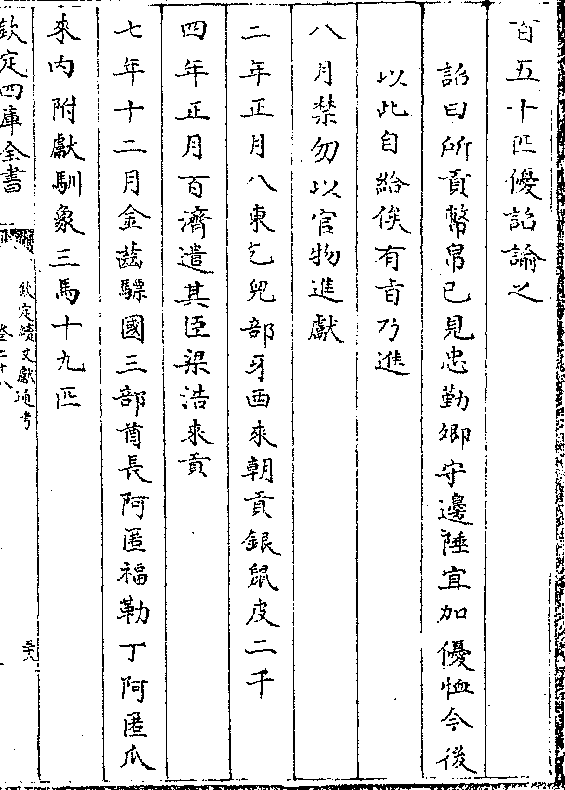 百五十匹優詔諭之
詔曰所貢幣帛已見忠勤卿守邊陲宜加優恤今後
以此自給俟有㫖乃進
八月禁勿以官物進獻
二年正月八東乞兒部牙西來朝貢銀鼠皮二千
四年正月百濟遣其臣梁浩來貢
七年十二月金齒驃國三部酋長阿匿福勒丁阿匿瓜
來内附獻馴象三馬十九匹
欽定四庫全書
欽定續文獻通考
卷二十八